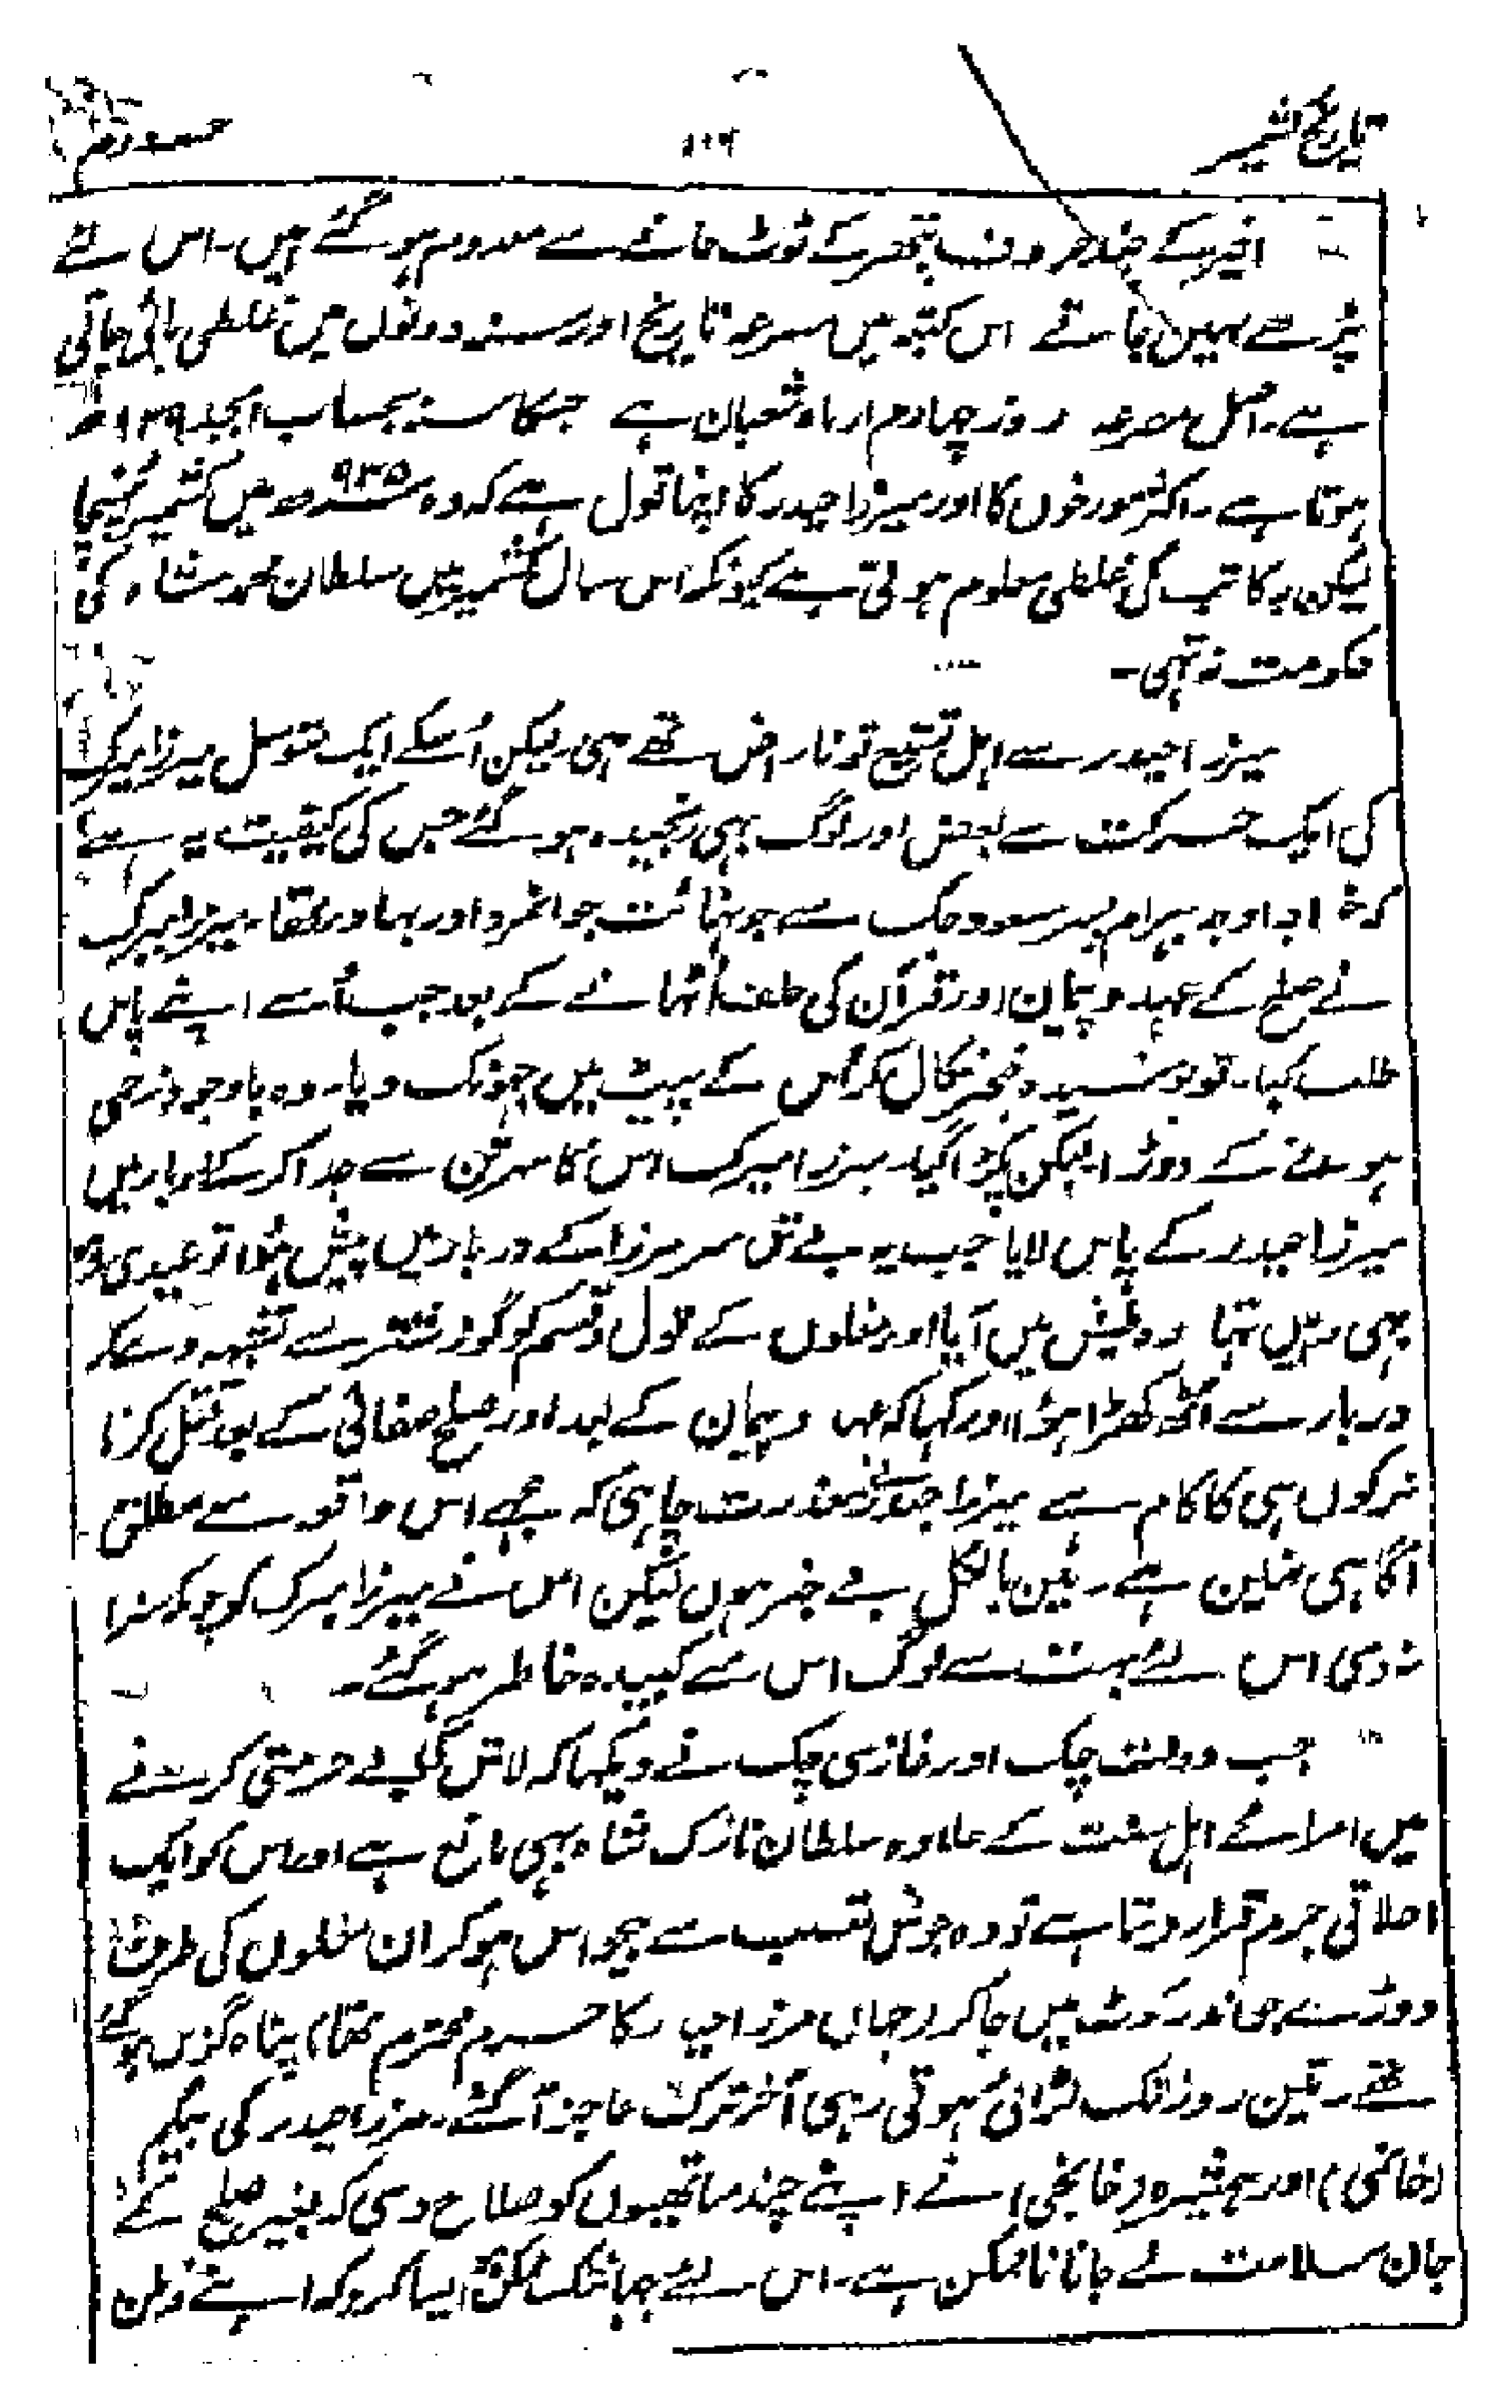 تاریخ کشمیر
حصہ دوم
اخیر کے چند حروف پتھر کے ٹوٹ جانے سے معدوم ہو گئے ہیں۔ اس لئے
پڑھے نہیں جاتے اس کتبہ میں مصرعہ تاریخ اور سنہ دونوں میں غلطی پائی جاتی
ہے۔ اصل مصرعہ روز چہارم از ماہ شعبان ہے جسکا سنہ بحساب ابجد ۹۳۹ھ
ہوتا ہے۔ اکثر مورخوں کا اور میرزا حیدر کا اپنا قول ہے کہ وہ ۹۳۵ھ میں کشمیر پہنچا
لیکن یہ کاتب کی غلطی معلوم ہوتی ہے کیونکہ اس سال کشمیر میں سلطان محمد شاہ کی
حکومت نہ تہی۔
میرزا حیدر سے اہل تشیع تو ناراض تھے ہی لیکن اُسکے ایک متوسل میرزا میرک
کی ایک حرکت سے بعض اور لوگ بہی رنجیدہ ہو گئے جس کی کیفیت یہ ہے
کہ خواجہ بہرام پسر مسعود چک سے جو نہائت جوانمرد اور بہادر تھا۔ میرزا میرک
نے صلح کے عہد و پیمان اور قرآن کی حلف اُٹھانے کے بعد جب اُسے اپنے پاس
طلب کیا۔ تو پوشیدہ خنجر نکال کر اُس کے پیٹ میں جہونک دیا۔ وہ باوجود زخمی
ہونے کے دوڑا۔ لیکن پکڑا گیا۔ میرزا میرک اس کا سر تن سے جدا کر کے دربار میں
میرزا حیدر کے پاس لایا جب یہ بے تن سر میرزا کے دربار میں پیش ہوا تو عیدی
بہی وہیں تہا وہ طیش میں آیا اور مغلوں کے قول و قسم کو گوز شتر سے تشبیہ دے کر
دربار سے اُٹھ کھڑا ہوا اور کہا کہ عہد و پیمان کے بعد اور صلح صفائی کے بعد قتل کرنا
ترکوں ہی کا کام ہے میرزا حیدر نے معذرت چاہی کہ مجھے اس واقعہ سے مطلق
آگاہی نہیں ہے۔ میں بالکل بے خبر ہوں لیکن اس نے میرزا میرک کو چونکہ سزا
نہ دی اس لئے بہت سے لوگ اس سے کبیدہ خاطر ہو گئے۔
جب دولت چک اور غازی چک نے دیکہا کہ لاش کی بے حرمتی کرنے
میں امرائے اہل سنت کے علاوہ سلطان نازک شاہ بہی مانع ہے اور اس کو ایک
اخلاقی جرم قرار دیتا ہے تو وہ جوش تعصب سے بیحواس ہو کر ان مغلوں کی طرف
دوڑے جو اندر کوٹ میں جا کر (جہاں مرزا حیدر کا حرم محترم تھا) پناہ گزیں ہو گئے
تھے۔ تین روز تک لڑائی ہوتی رہی آخر ترک عاجز آ گئے۔ مرزا حیدر کی بیگم
(خانمی) اور ہمشیرہ (خانجی) نے اپنے چند ساتھیوں کو صلاح دی کہ بغیر صلح کے
جان سلامت لے جانا ناممکن ہے۔ اس لئے جہانتک ممکن ہو ایسا کرو کہ اپنے وطن